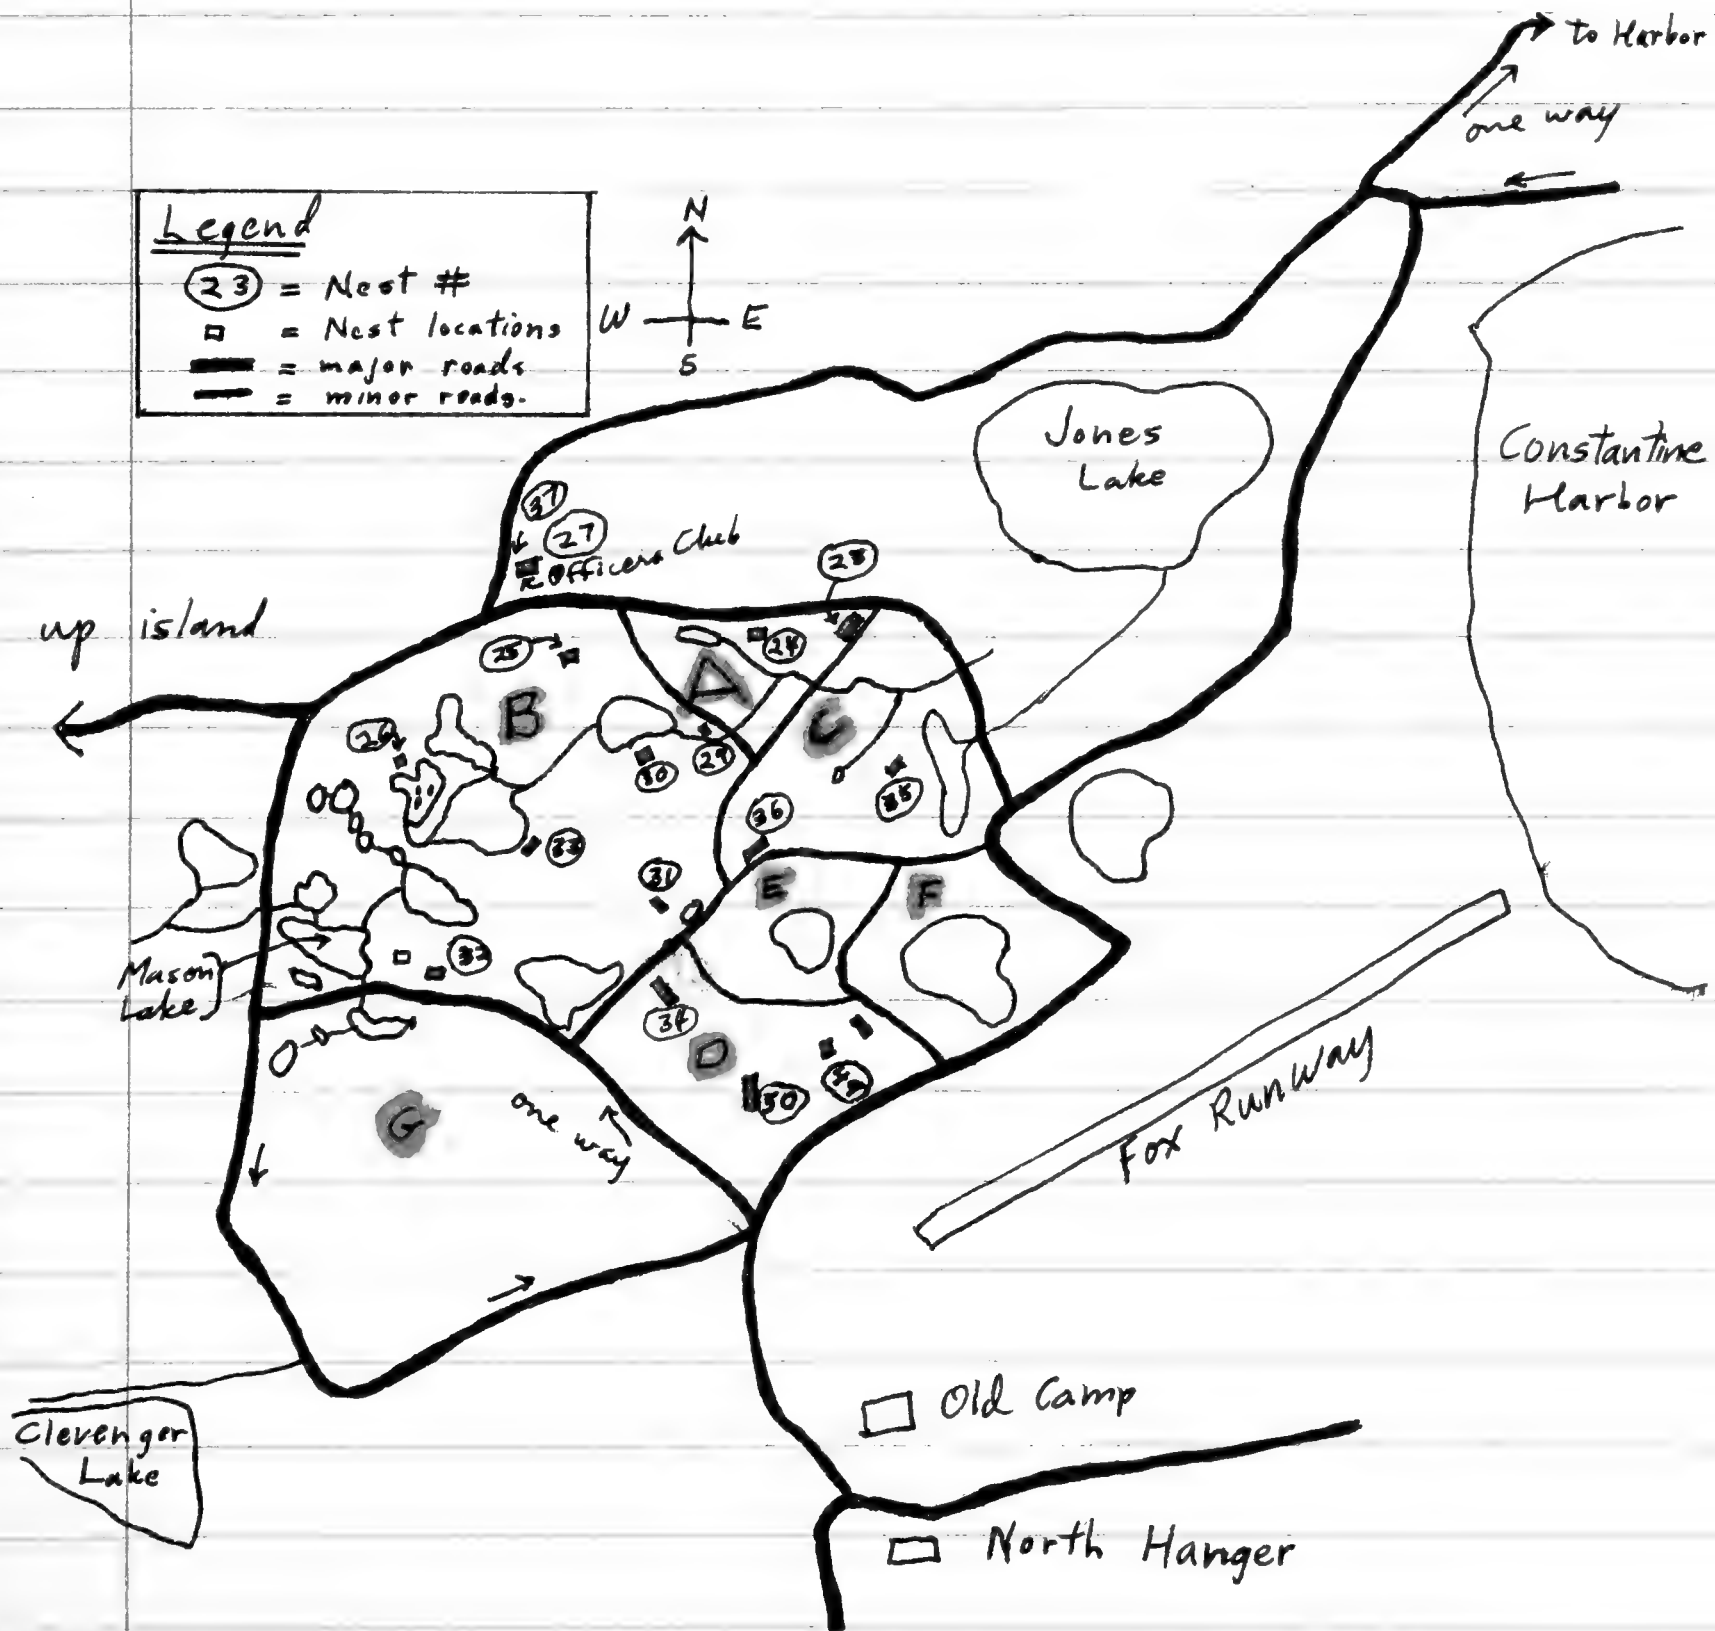 to Harbor
one way
Legend
23 = Nest #
= Nest locations
= major roads
= minor roads.
N
W E
S
Jones
Lake
Constantine
Harbor
37
27
Officers Club
28
up island
25
24
A
B
C
26
30
29
35
36
33
31
E
F
32
Mason
Lake
34
D
50
49
G
one way
Fox Runway
Clevenger
Lake
Old Camp
North Hanger